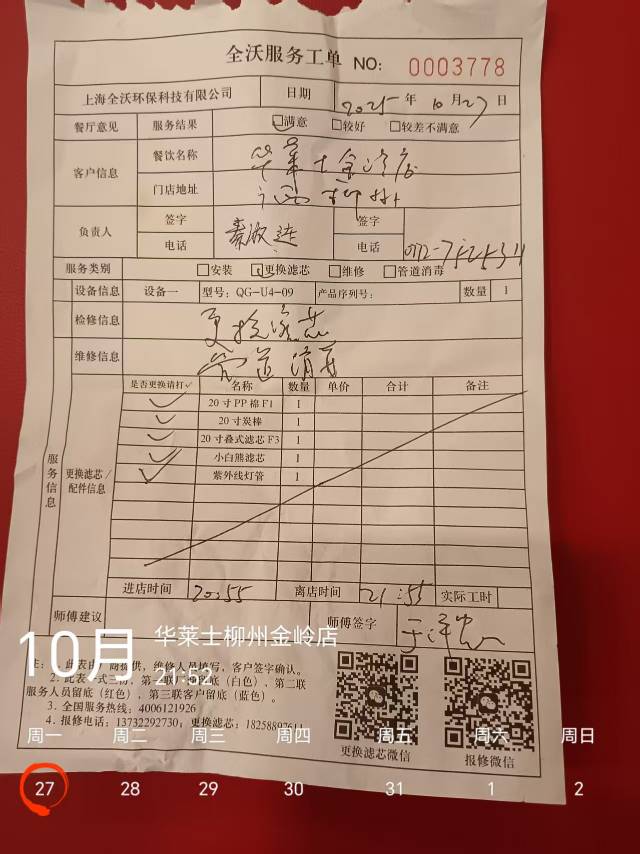 全沃服务工单 NO: 0003778
上海全沃环保科技有限公司 日期 2025年10月27日
餐厅意见 服务结果 满意 较好 较差不满意
客户信息 餐饮名称 华莱士金岭店
门店地址 广西柳州
负责人 签字 签字
电话 电话
服务类别 安装 更换滤芯 维修 管道消毒
设备信息 设备一 型号: QG-U4-09 产品序列号: 数量 1
检修信息 更换滤芯
维修信息 管道消毒
服务信息 更换滤芯/配件信息
是否更换请打✓ 名称 数量 单价 合计 备注
✓ 20寸PP棉F1 1
✓ 20寸炭棒 1
✓ 20寸叠式滤芯F3 1
✓ 小白熊滤芯 1
✓ 紫外线灯管 1
进店时间 20:55 离店时间 21:55 实际工时
师傅建议 师傅签字
10月 华莱士柳州金岭店
21:52
注: 1.此表由厂商提供, 维修人员填写, 客户签字确认。
2.此表一式三份, 第一联厂商留底(白色), 第二联
服务人员留底(红色), 第三联客户留底(蓝色)。
3.全国服务热线: 4006121926
4.报修电话: 13732292730; 更换滤芯:
更换滤芯微信 报修微信
周一 周二 周三 周四 周五 周六 周日
27 28 29 30 31 1 2